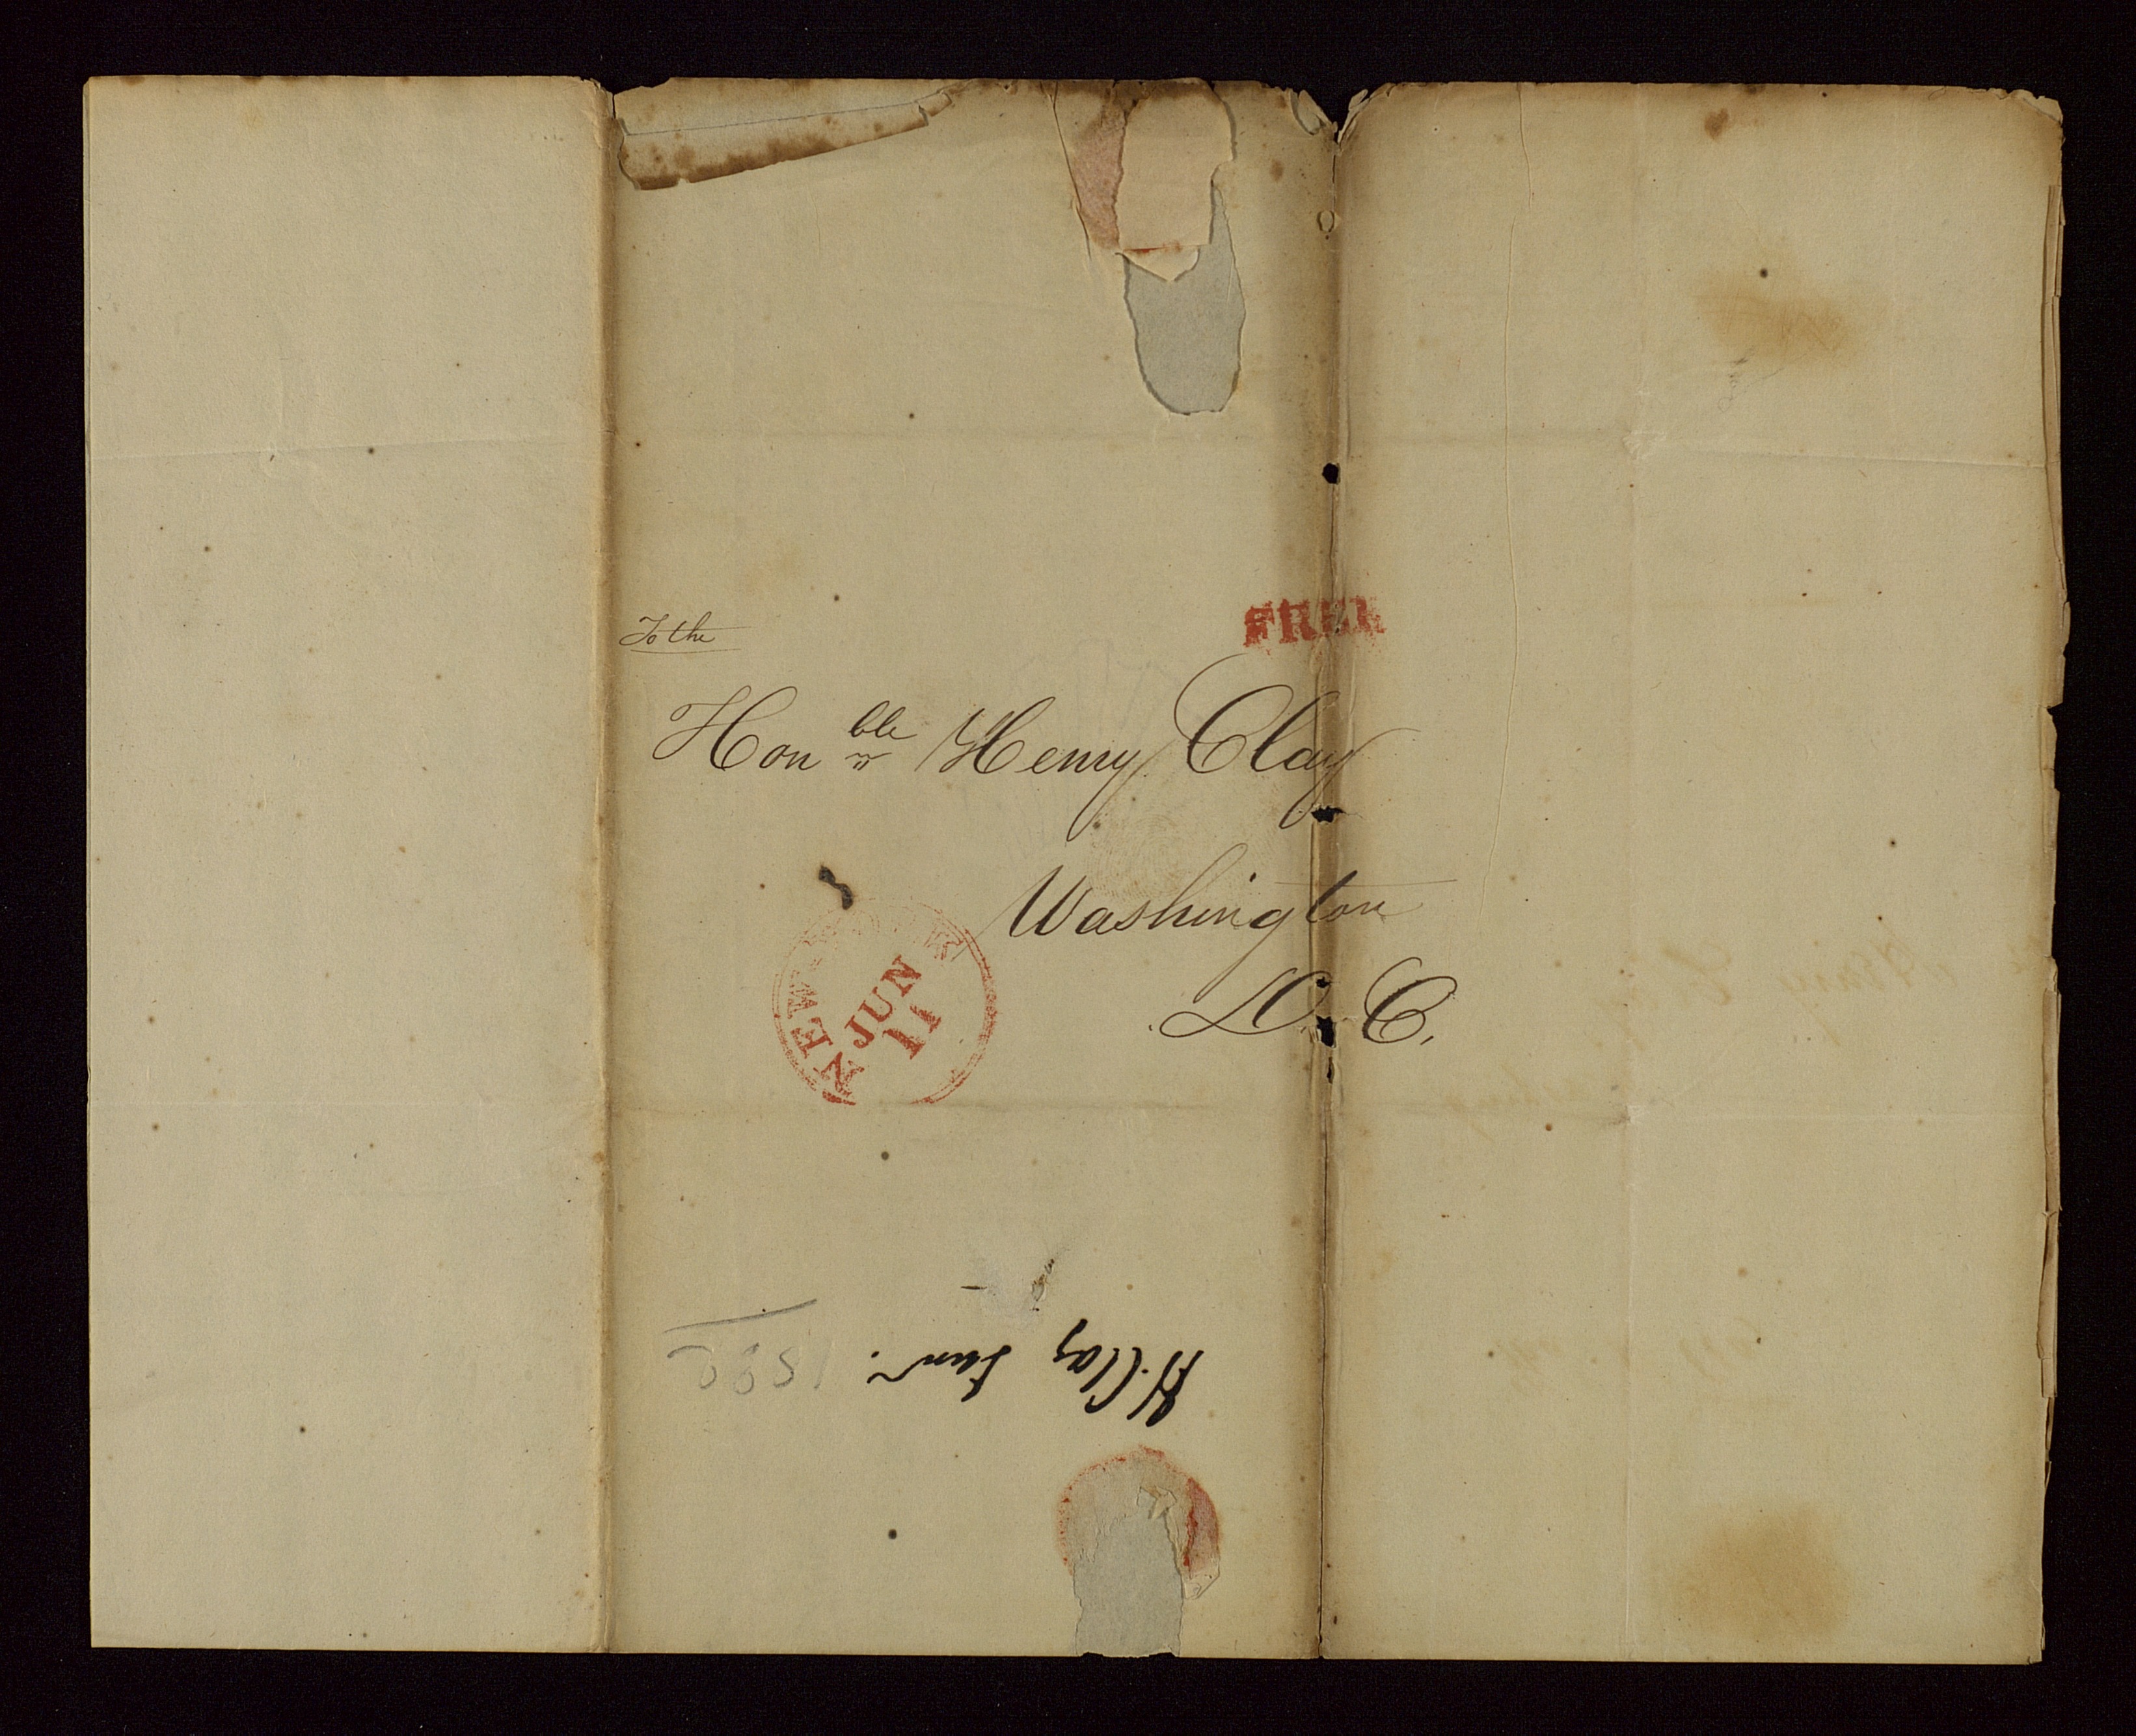 To the
FREE
Hon^ble Henry Clay
Washington
D. C.
NEW YORK
JUN
11
H. Clay Junr.